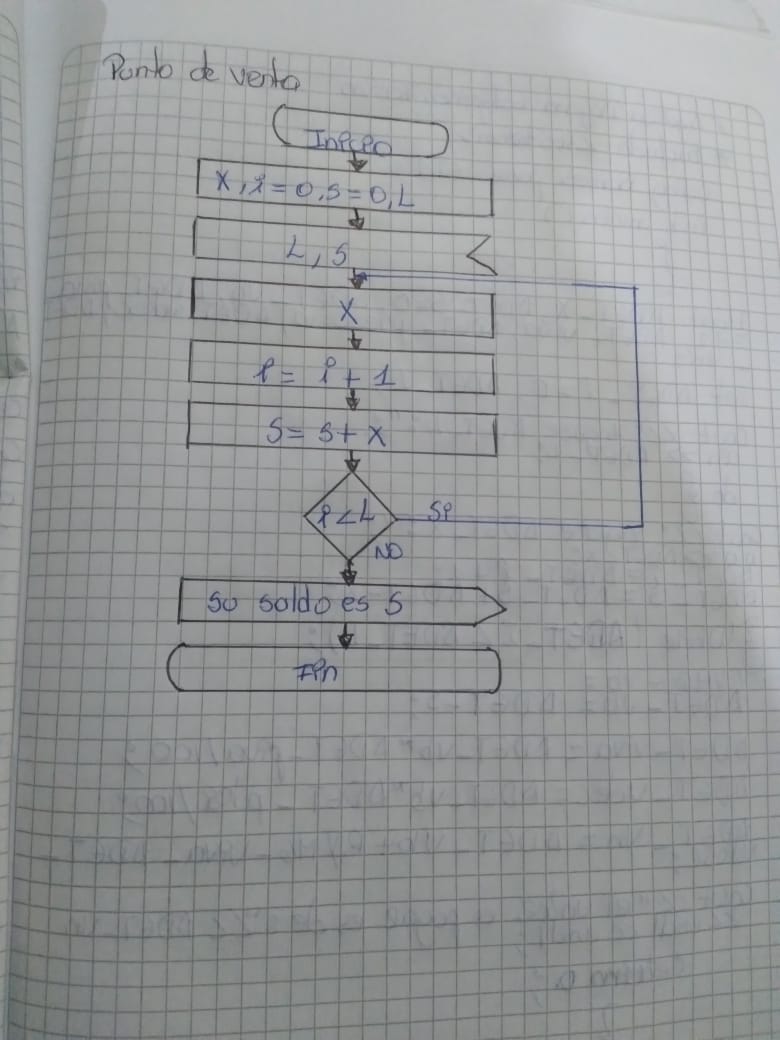 Punto de venta
Inicio
X, i = 0, S = 0, L
L, S
X
i = i + 1
S = S + X
i < L
Si
NO
Su saldo es S
Fin